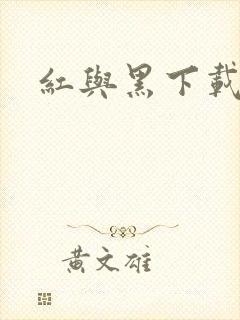 紅與黑下載
黃文雄